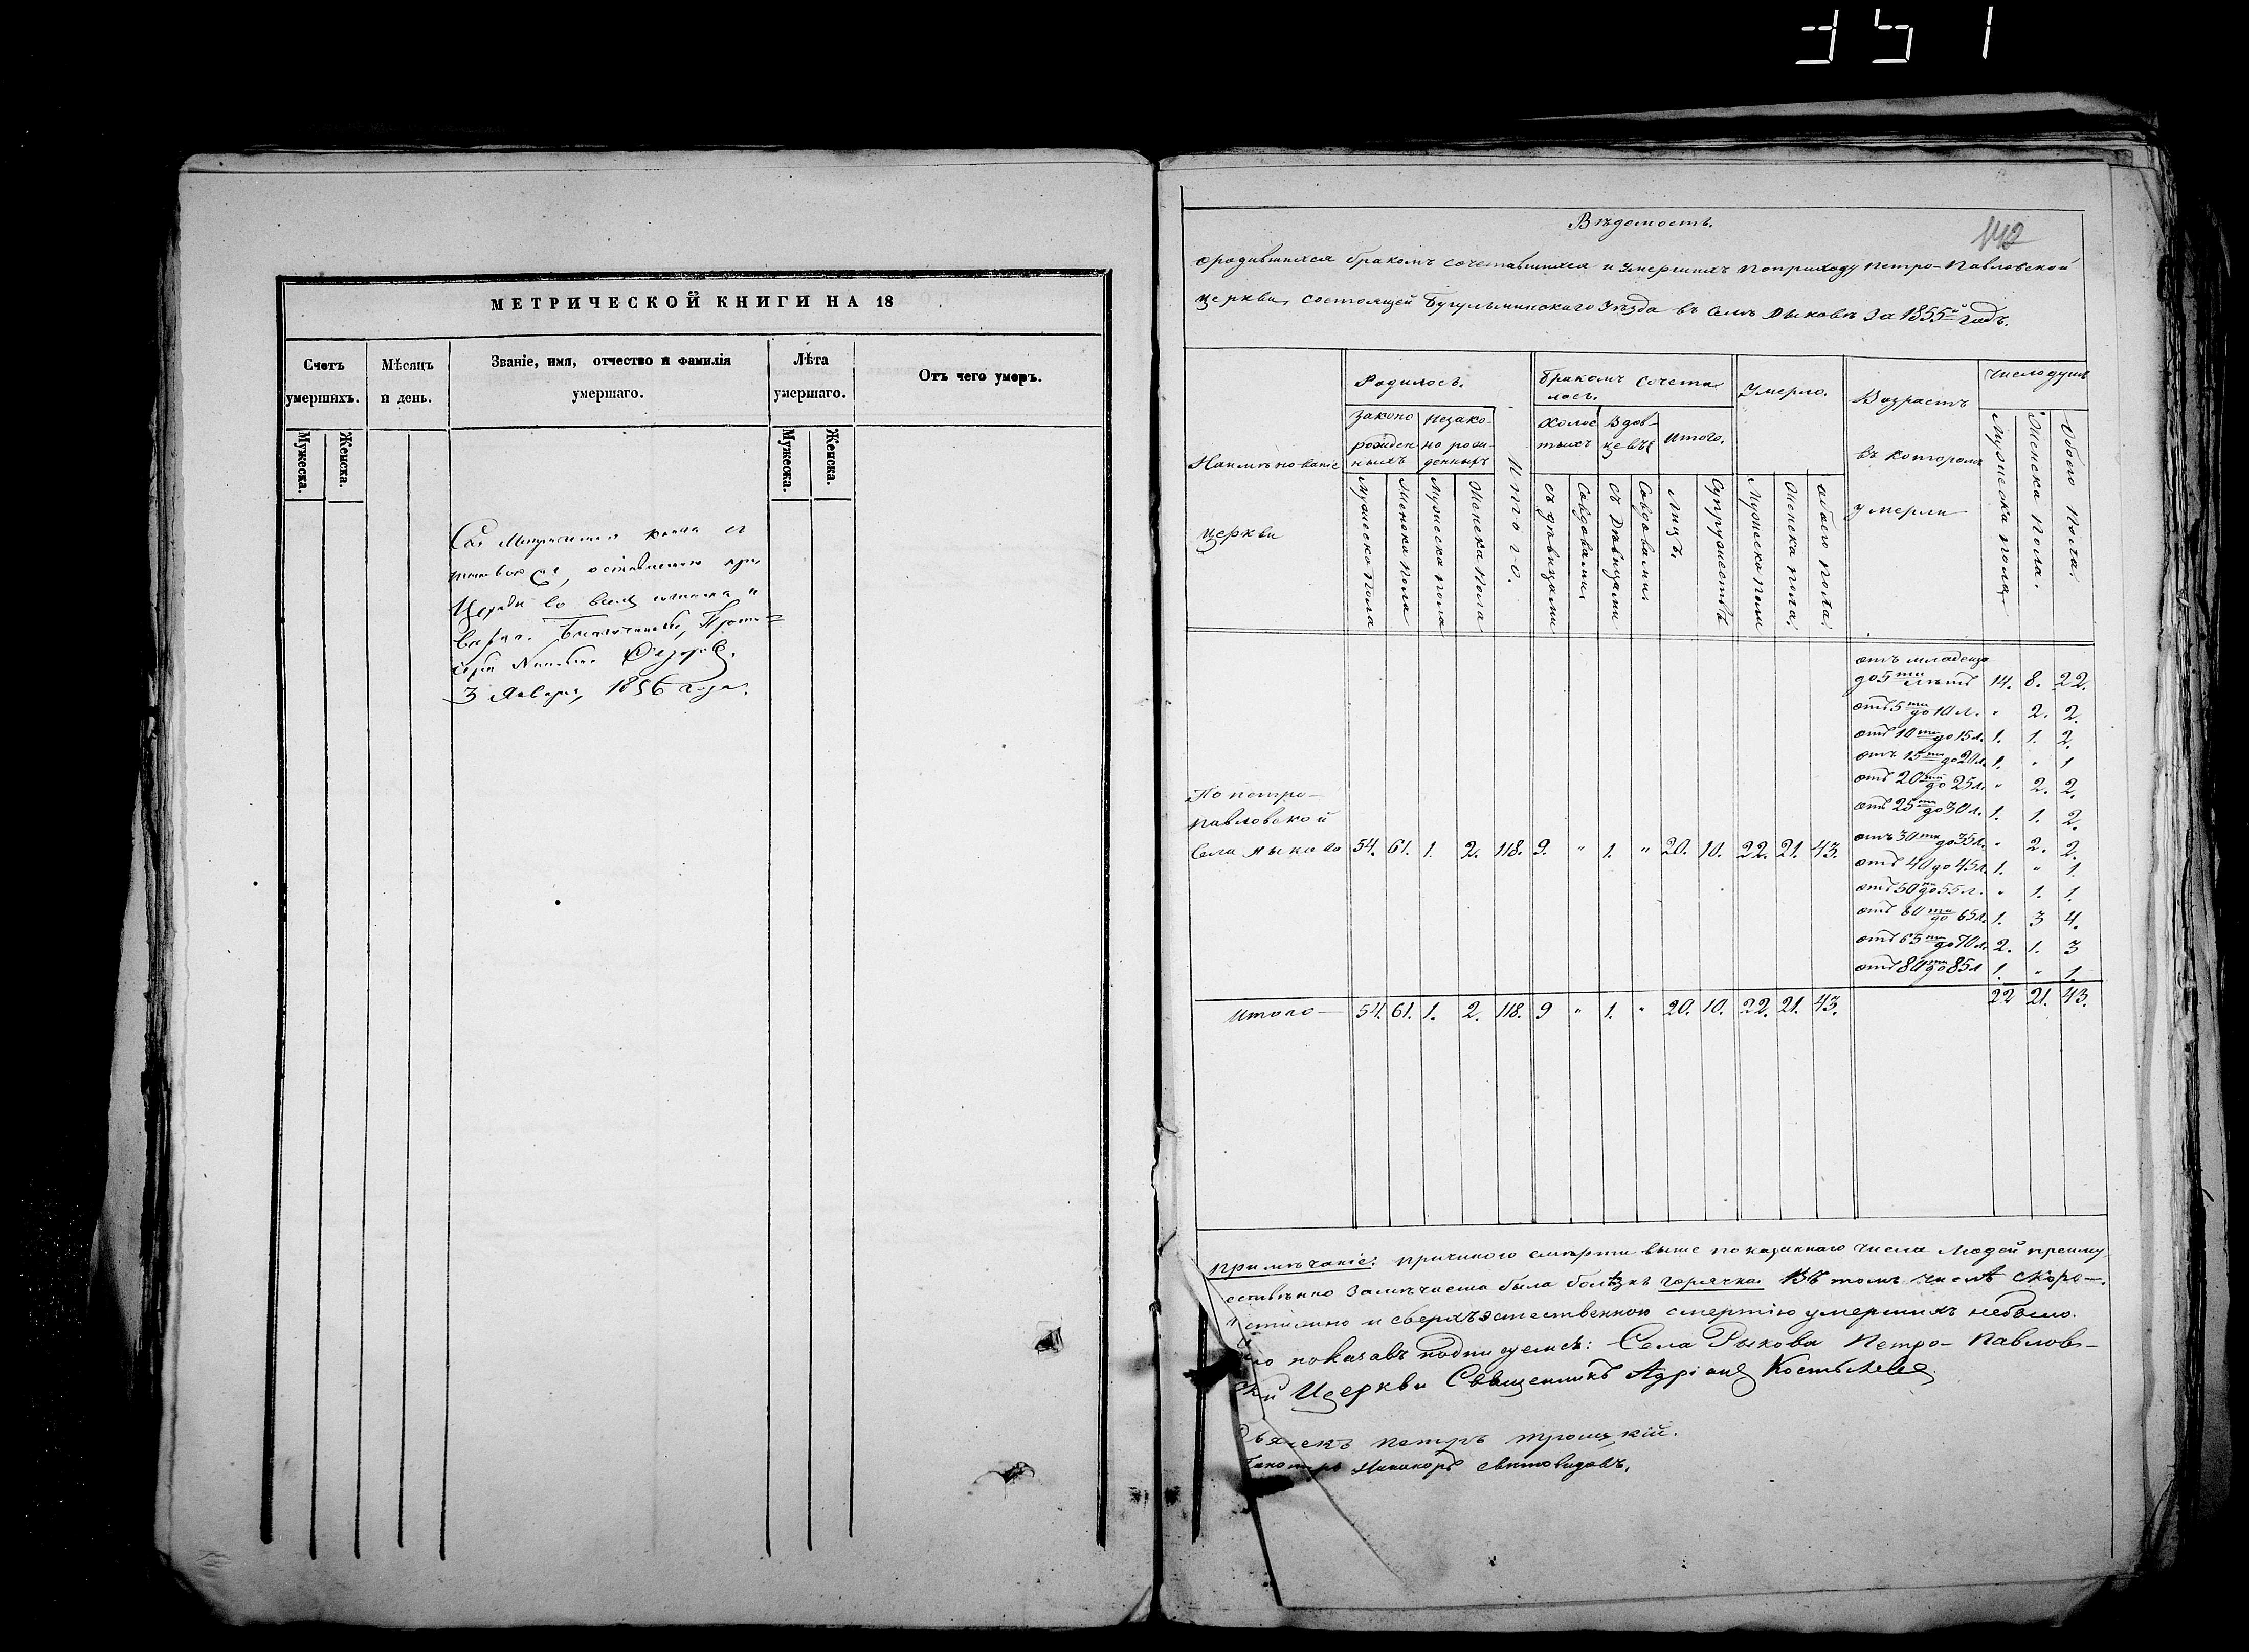 351
МЕТРИЧЕСКОЙ КНИГИ НА 18
Счетъ умершихъ.
Мѣсяцъ и день.
Званіе, имя, отчество и фамилія умершаго.
Лѣта умершаго.
Отъ чего умеръ.
Мужеска. Женска.
Мужеска. Женска.
Сія
оставлению при
Церкви во всей
верна. Благочинный, Прото=
іерей
3 Января, 1856 года.
142
Вѣдомость.
о родившихся бракомъ сочетавшихся и умершихъ по приходу Петро-Павловской
церкви, состоящей Бугульминскаго уѣзда въ селѣ Рыковѣ за 1855й годъ.
Наимѣнованіе церкви
Родилось.
Законо рожденныхъ
Незако-но рожденныхъ
Мужеска пола
Женска пола
Мужеска пола
Женска пола
Итого.
Бракомъ сочеталось.
Холостыхъ
Вдовцевъ
Итого.
Съ дѣвицами
Со вдовами
Съ дѣвицами
Со вдовами
Лицъ.
Супружествъ
Умерло.
Мужеска пола
Женска пола
обоего пола.
Возрастъ въ котором умерли
Число душъ
Мужеска пола
Женска пола.
Обоего пола.
отъ младенца
до 5ти лѣтъ 14. 8. 22.
отъ 5ти до 10 л. " 2. 2.
отъ 10ти до 15 л. 1. 1. 2.
отъ 15ти до 20 л. 1. " 1
отъ 20ти до 25 л. " 2. 2.
отъ 25ти до 30 л. 1. 1. 2.
отъ 30ти до 35 л. " 2. 2.
отъ 40 до 45 л. 1. " 1.
отъ 50ти до 55 л. " 1. 1.
отъ 60ти до 65 л. 1. 3 4.
отъ 65ти до 70 л. 2. 1. 3
отъ 80ти до 85 л 1. " 1.
22 21. 43.
По петро-
павловской
Села Рыкова 54. 61. 1. 2. 118. 9. " 1. " 20. 10. 22. 21. 43.
Итого — 54. 61. 1. 2. 118. 9 " 1. " 20. 10. 22. 21. 43.
Примѣчаніе: Причиною смѣрти выше показаннаго числа людей преиму
ествѣнно замѣчаема была болѣзнь горячка. Въ томъ числѣ скоро-
и сверхъэстественною смертію умершихъ небыло.
показавъ подпи уемся: Села Рыкова Петро-Павлов-
Церкви Священникъ Адріанъ
Дьячекъ Петръ Троицкій.
Никаноръ Свитовидовъ.